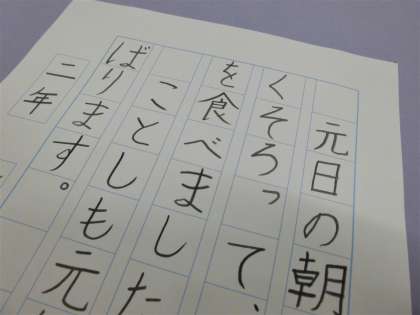 元日の朝
くそろって、
を食べました
ことしも元
ばります。
二年